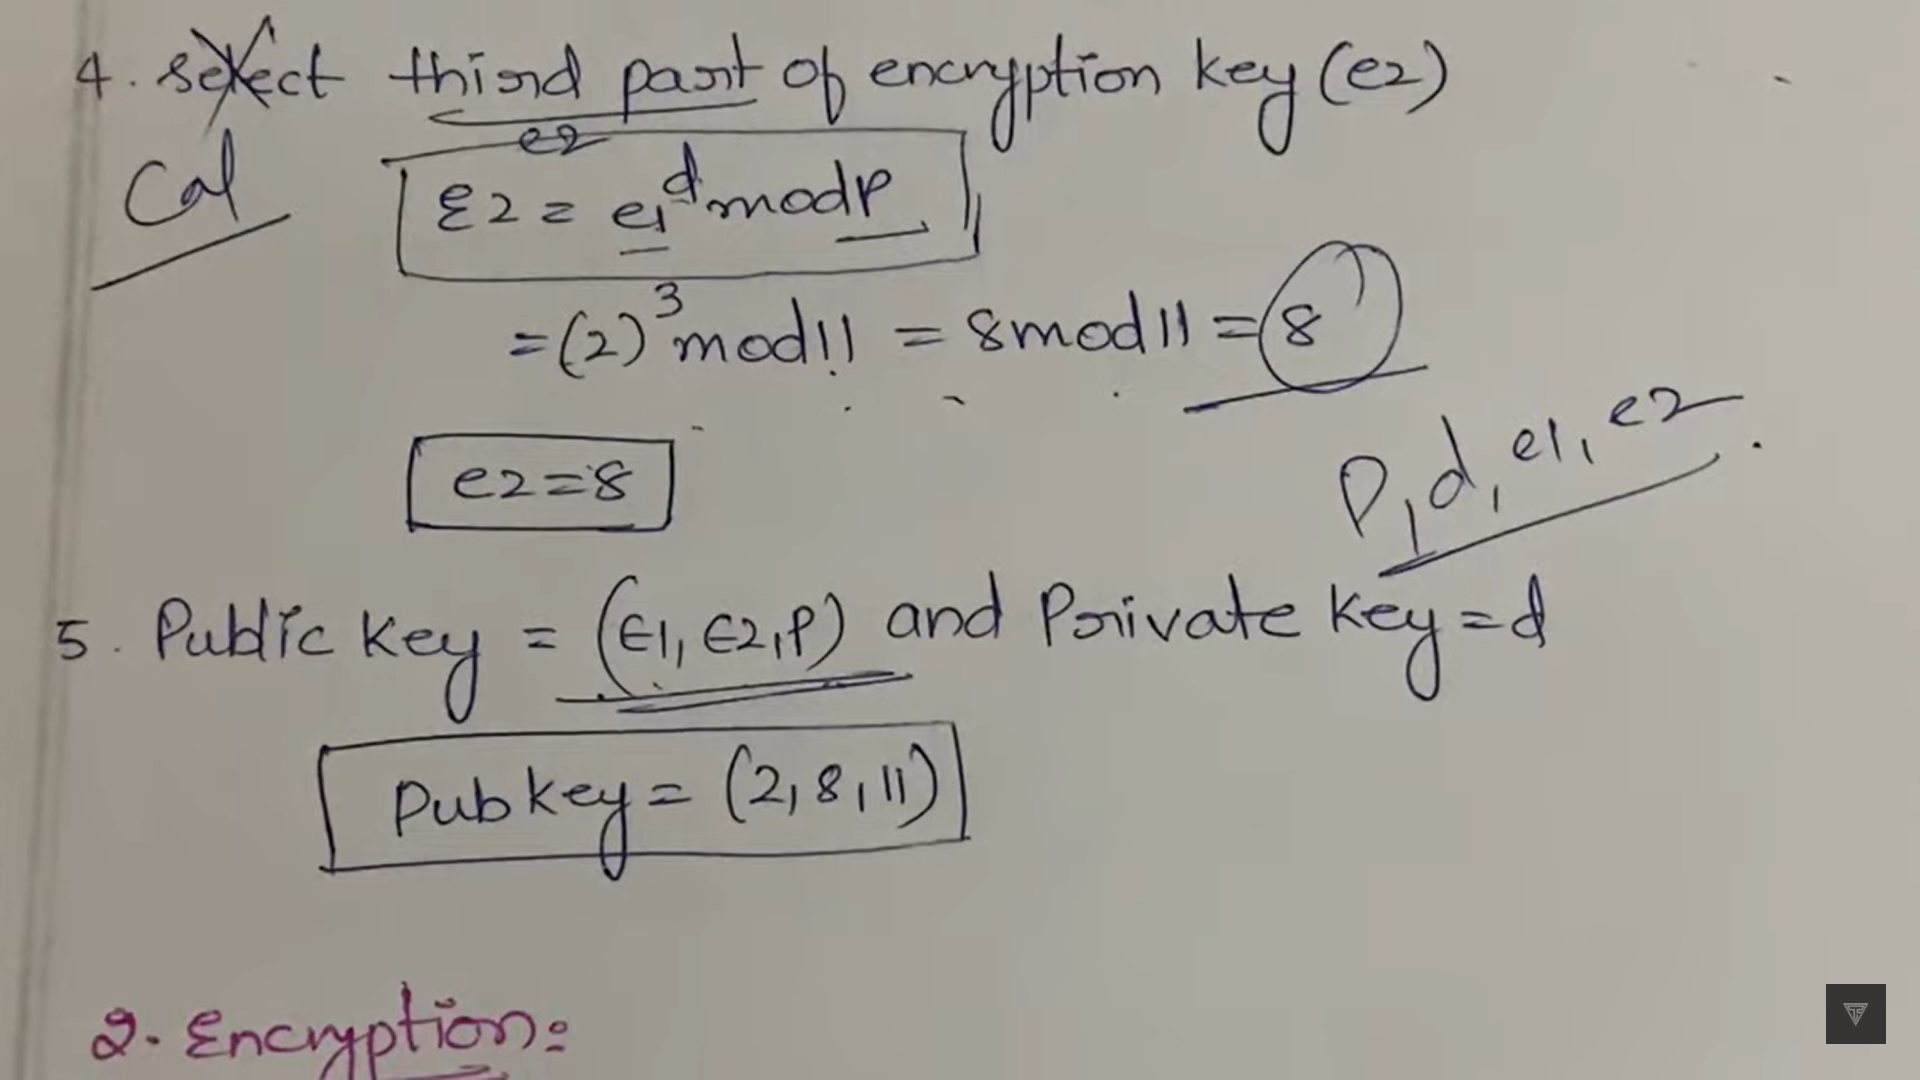 4. select third part of encryption key (e2)
Cal
e2
E2 = e1^d mod P
= (2)^3 mod 11 = 8 mod 11 = 8
e2 = 8
P, d, e1, e2
5. Public key = (E1, E2, P) and Private key = d
Pub key = (2, 8, 11)
2. Encryption: